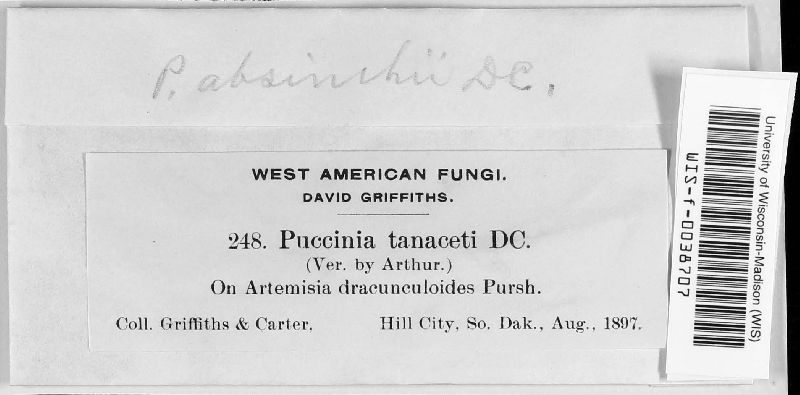 P. absinthii DC.
WEST AMERICAN FUNGI.
DAVID GRIFFITHS.
248. Puccinia tanaceti DC.
(Ver. by Arthur.)
On Artemisia dracunculoides Pursh.
Coll. Griffiths & Carter. Hill City, So. Dak., Aug., 1897.
University of Wisconsin-Madison (WIS)
WIS-f-0038707